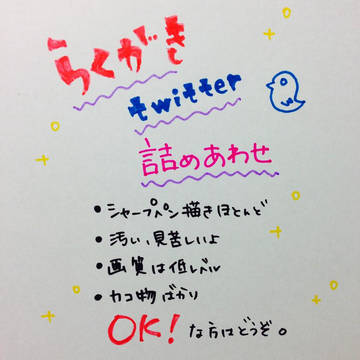 らくがき
twitter
詰めあわせ
•シャープペン描きほとんど
•汚い、見苦しいよ
•画質は低レベル
•カコ物ばかり
OK!な方はどうぞ。